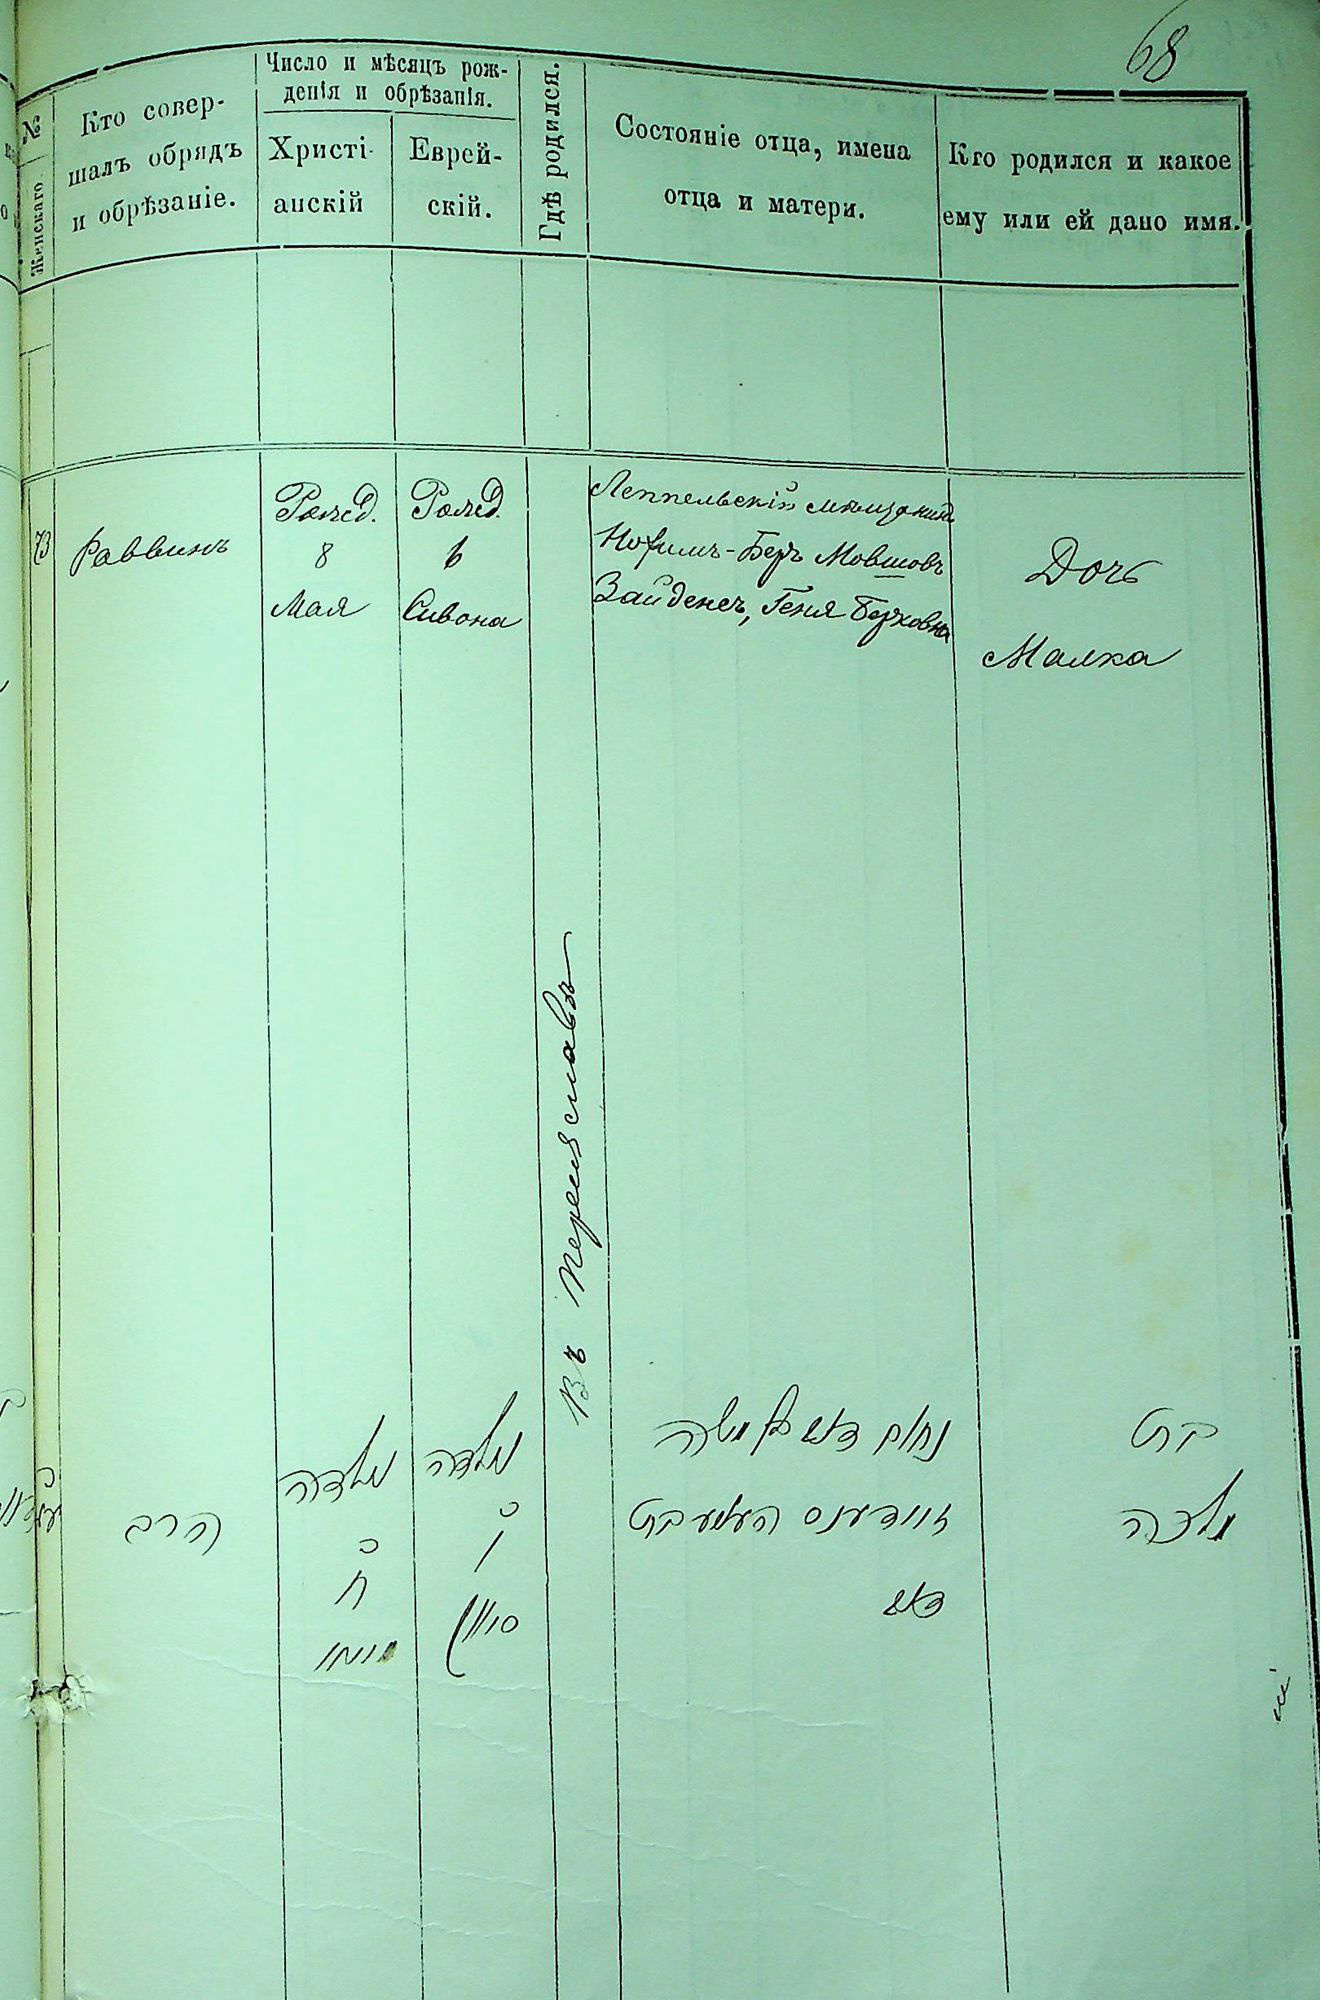 68
№
Женскаго.
Кто совер-
шалъ обрядъ
и обрѣзаніе.
Число и мѣсяцъ рож-
денія и обрѣзанія.
Христі-
анскій
Еврей-
скій.
Гдѣ родился.
Состояніе отца, имена
отца и матери.
Кто родился и какое
ему или ей дано имя.
73
Раввинъ
Рожд.
8
Мая
Рожд.
6
Сивона
Въ Переяславѣ
Леппельскій мѣщанинъ
Беръ Мовшовъ
Зайденсъ, Геня Берковна
Дочь
Малка
הרב
נולדה
ח
מאי
נולדה
ו
סיון
נחום בער משה
זיידענס העניע בת
בער
בת
מלכה